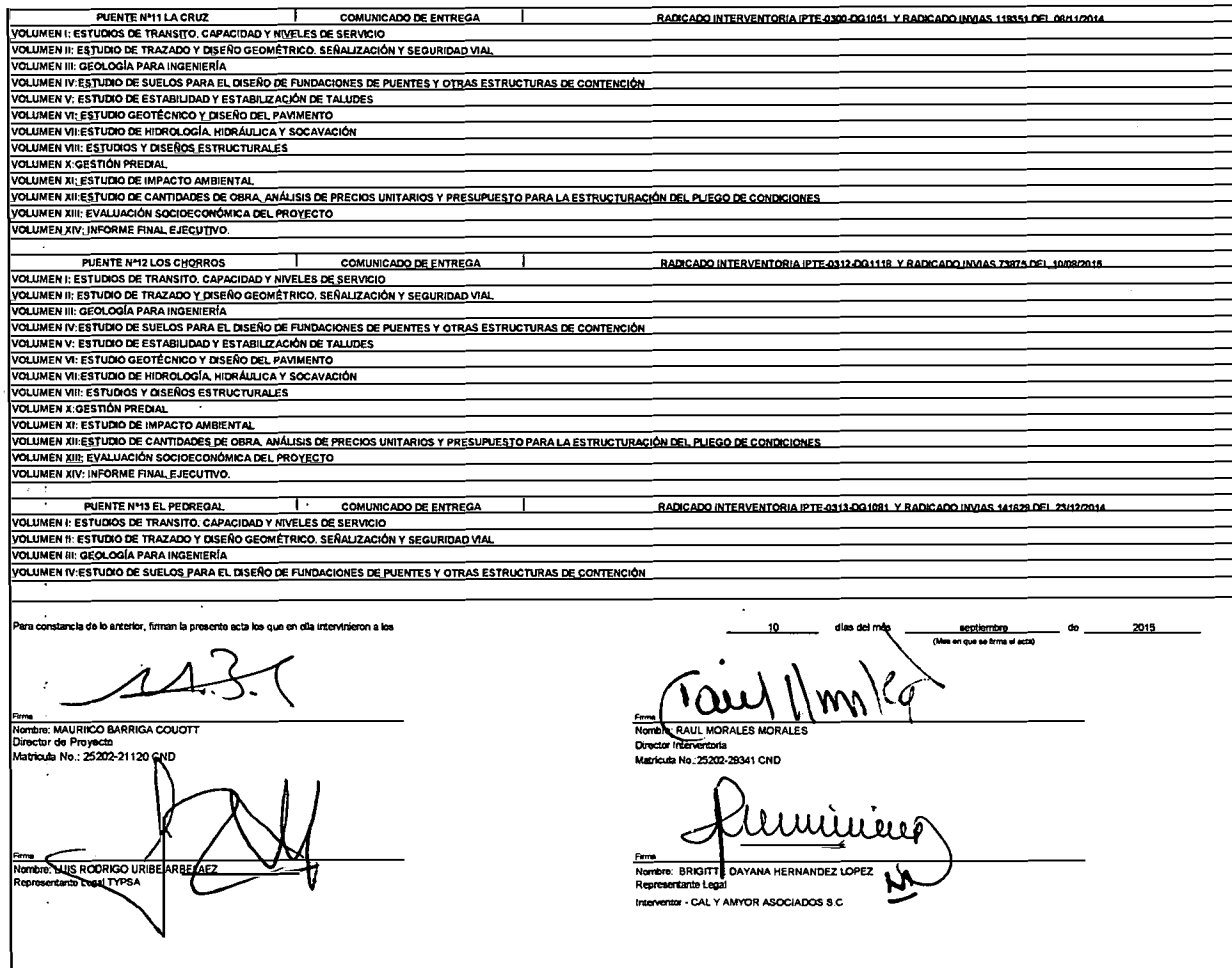 PUENTE Nº11 LA CRUZ COMUNICADO DE ENTREGA RADICADO INTERVENTORIA IPTE-0300-DG1051 Y RADICADO INVIAS 119351 DEL 06/11/2014
VOLUMEN I: ESTUDIOS DE TRANSITO, CAPACIDAD Y NIVELES DE SERVICIO
VOLUMEN II: ESTUDIO DE TRAZADO Y DISEÑO GEOMÉTRICO, SEÑALIZACIÓN Y SEGURIDAD VIAL
VOLUMEN III: GEOLOGÍA PARA INGENIERÍA
VOLUMEN IV:ESTUDIO DE SUELOS PARA EL DISEÑO DE FUNDACIONES DE PUENTES Y OTRAS ESTRUCTURAS DE CONTENCIÓN
VOLUMEN V: ESTUDIO DE ESTABILIDAD Y ESTABILIZACIÓN DE TALUDES
VOLUMEN VI: ESTUDIO GEOTÉCNICO Y DISEÑO DEL PAVIMENTO
VOLUMEN VII:ESTUDIO DE HIDROLOGÍA, HIDRÁULICA Y SOCAVACIÓN
VOLUMEN VIII: ESTUDIOS Y DISEÑOS ESTRUCTURALES
VOLUMEN X:GESTIÓN PREDIAL
VOLUMEN XI: ESTUDIO DE IMPACTO AMBIENTAL
VOLUMEN XII:ESTUDIO DE CANTIDADES DE OBRA, ANÁLISIS DE PRECIOS UNITARIOS Y PRESUPUESTO PARA LA ESTRUCTURACIÓN DEL PLIEGO DE CONDICIONES
VOLUMEN XIII: EVALUACIÓN SOCIOECONÓMICA DEL PROYECTO
VOLUMEN XIV: INFORME FINAL EJECUTIVO.
PUENTE Nº12 LOS CHORROS COMUNICADO DE ENTREGA RADICADO INTERVENTORIA IPTE-0312-DG1118 Y RADICADO INVIAS 73875 DEL 10/08/2015
VOLUMEN I: ESTUDIOS DE TRANSITO, CAPACIDAD Y NIVELES DE SERVICIO
VOLUMEN II: ESTUDIO DE TRAZADO Y DISEÑO GEOMÉTRICO, SEÑALIZACIÓN Y SEGURIDAD VIAL
VOLUMEN III: GEOLOGÍA PARA INGENIERÍA
VOLUMEN IV:ESTUDIO DE SUELOS PARA EL DISEÑO DE FUNDACIONES DE PUENTES Y OTRAS ESTRUCTURAS DE CONTENCIÓN
VOLUMEN V: ESTUDIO DE ESTABILIDAD Y ESTABILIZACIÓN DE TALUDES
VOLUMEN VI: ESTUDIO GEOTÉCNICO Y DISEÑO DEL PAVIMENTO
VOLUMEN VII:ESTUDIO DE HIDROLOGÍA, HIDRÁULICA Y SOCAVACIÓN
VOLUMEN VIII: ESTUDIOS Y DISEÑOS ESTRUCTURALES
VOLUMEN X:GESTIÓN PREDIAL
VOLUMEN XI: ESTUDIO DE IMPACTO AMBIENTAL
VOLUMEN XII:ESTUDIO DE CANTIDADES DE OBRA, ANÁLISIS DE PRECIOS UNITARIOS Y PRESUPUESTO PARA LA ESTRUCTURACIÓN DEL PLIEGO DE CONDICIONES
VOLUMEN XIII: EVALUACIÓN SOCIOECONÓMICA DEL PROYECTO
VOLUMEN XIV: INFORME FINAL EJECUTIVO.
PUENTE Nº13 EL PEDREGAL COMUNICADO DE ENTREGA RADICADO INTERVENTORIA IPTE-0313-DG1081 Y RADICADO INVIAS 141629 DEL 23/12/2014
VOLUMEN I: ESTUDIOS DE TRANSITO, CAPACIDAD Y NIVELES DE SERVICIO
VOLUMEN II: ESTUDIO DE TRAZADO Y DISEÑO GEOMÉTRICO, SEÑALIZACIÓN Y SEGURIDAD VIAL
VOLUMEN III: GEOLOGÍA PARA INGENIERÍA
VOLUMEN IV:ESTUDIO DE SUELOS PARA EL DISEÑO DE FUNDACIONES DE PUENTES Y OTRAS ESTRUCTURAS DE CONTENCIÓN
Para constancia de lo anterior, firman la presente acta los que en ella intervinieron a los 10 días del mes septiembre de 2015
(Mes en que se firma el acta)
Firma
Nombre: MAURIICO BARRIGA COUOTT
Director de Proyecto
Matricula No.: 25202-21120 CND
Firma
Nombre: RAUL MORALES MORALES
Director Interventoria
Matricula No.:25202-29341 CND
Firma
Nombre: LUIS RODRIGO URIBE ARBELAEZ
Representante Legal TYPSA
Firma
Nombre: BRIGITTE DAYANA HERNANDEZ LOPEZ
Representante Legal
Interventor - CAL Y AMYOR ASOCIADOS S.C